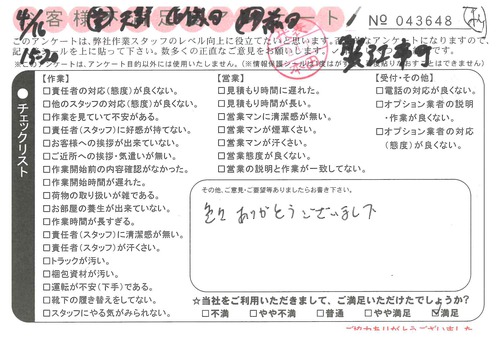 4/1
№ 043648
15:30
このアンケートは、弊社作業スタッフのレベル向上に役立てたいと思います。
【作業】
□責任者の対応(態度)が良くない。
□他のスタッフの対応(態度)が良くない。
□作業を見ていて不安がある。
□責任者(スタッフ)に好感が持てない。
□お客様への挨拶が出来ていない。
□ご近所への挨拶・気遣いが無い。
□作業開始前の内容確認がなかった。
□作業開始時間が遅れた。
□荷物の取り扱いが雑である。
□お部屋の養生が出来ていない。
□作業時間が長すぎる。
□責任者(スタッフ)に清潔感が無い。
□責任者(スタッフ)が汗くさい。
□トラックが汚い。
□梱包資材が汚い。
□運転が不安(下手)である。
□靴下の履き替えをしてない。
□スタッフにやる気がみられない。
【営業】
□見積もり時間に遅れた。
□見積もり時間が長い。
□営業マンに清潔感が無い。
□営業マンが煙草くさい。
□営業マンが汗くさい。
□営業態度が良くない。
□営業の説明と作業が一致してない。
【受付・その他】
□電話の対応が良くない。
□オプション業者の説明
・作業が良くない。
□オプション業者の対応
(態度)が良くない。
●チェックリスト
その他、ご意見・ご要望等ありましたらお書き下さい。
色々ありがとうございました
☆当社をご利用いただきまして、ご満足いただけたでしょうか?
□不満 □やや不満 □普通 □やや満足 ☑満足
ご協力ありがとうございました